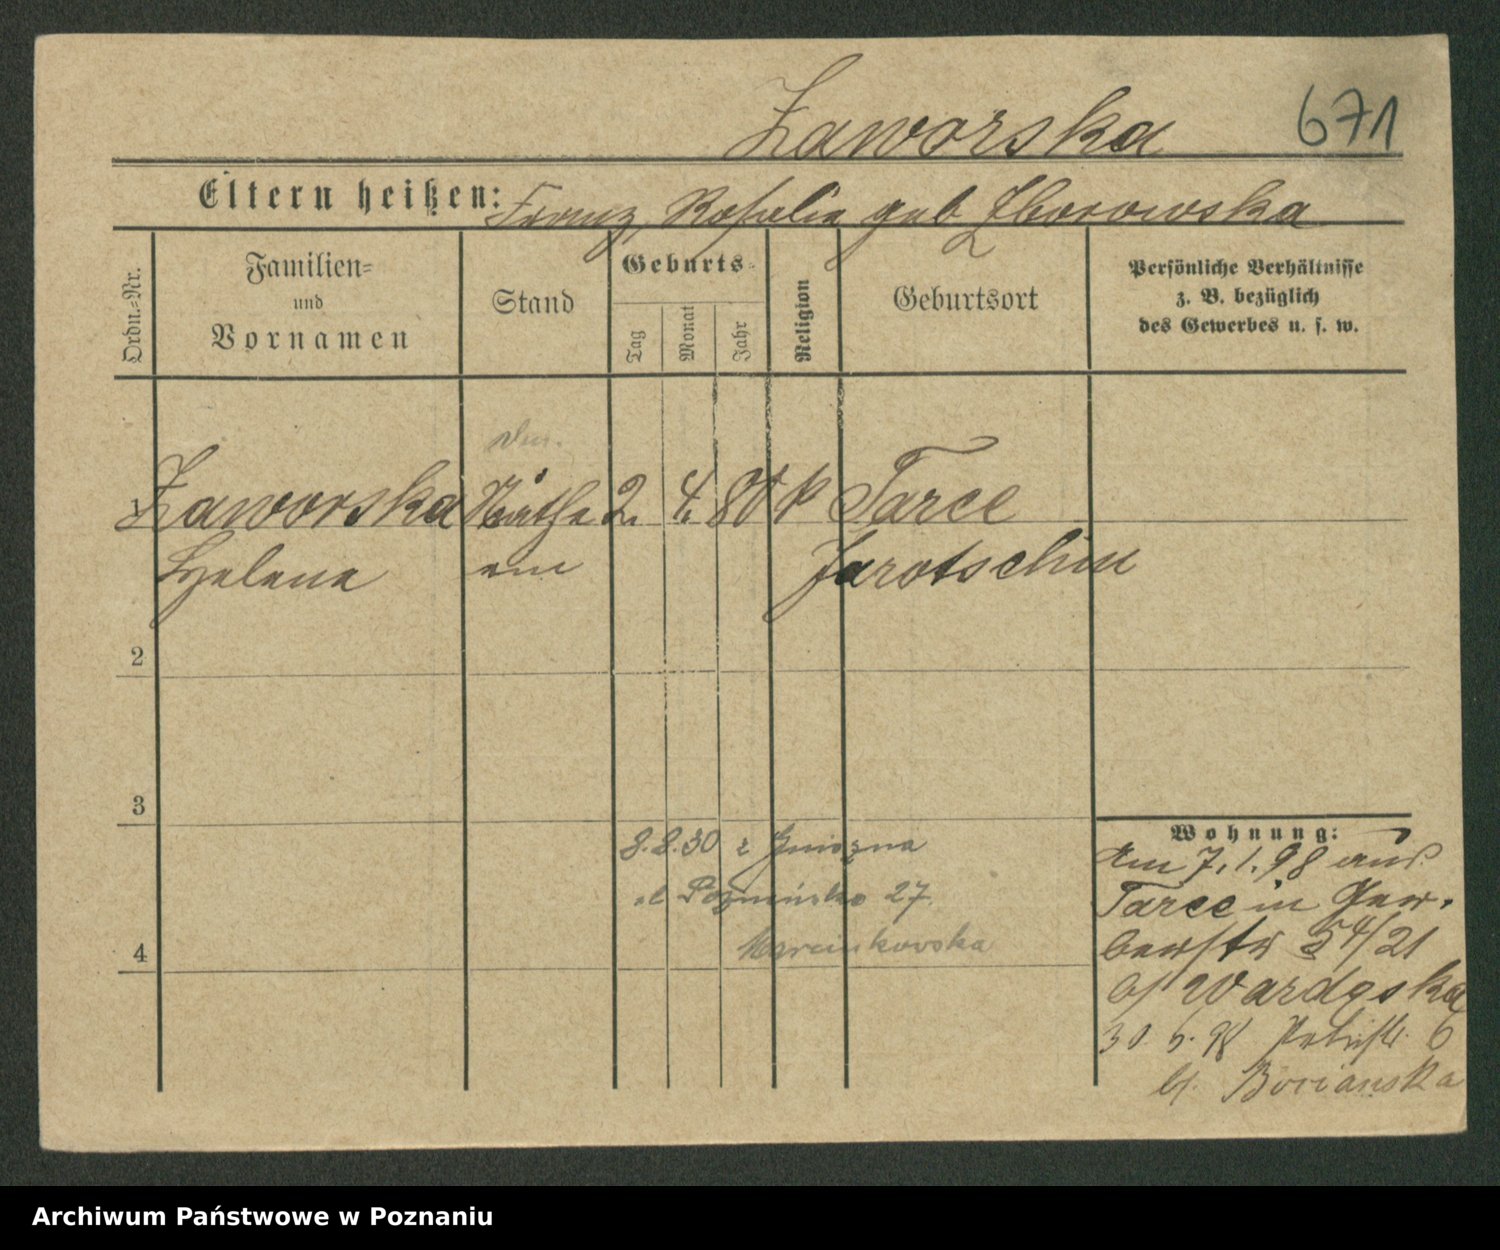 Zaworska 671
Eltern heißen: Franz, Rosalie geb Zborowska
Ordn.-Nr.
Familien-
und
Vornamen
Stand
Geburts-
Tag
Monat
Jahr
Religion
Geburtsort
Persönliche Verhältnisse
z. B. bezüglich
des Gewerbes u. s. w.
1 Zaworska Näthe 2. 4. 80 k Tarce
Helene rin Jarotschin
2
3
Wohnung:
8.8.30 z Gniezna
ul Poznańska 27
Marcinkowska
4
Am 7.1.98 aus
Tarce in Ger-
berstr 54/21
b/ Wardęska
30 6. 98 Petristr. 6
b/. Bocianska
Archiwum Państwowe w Poznaniu